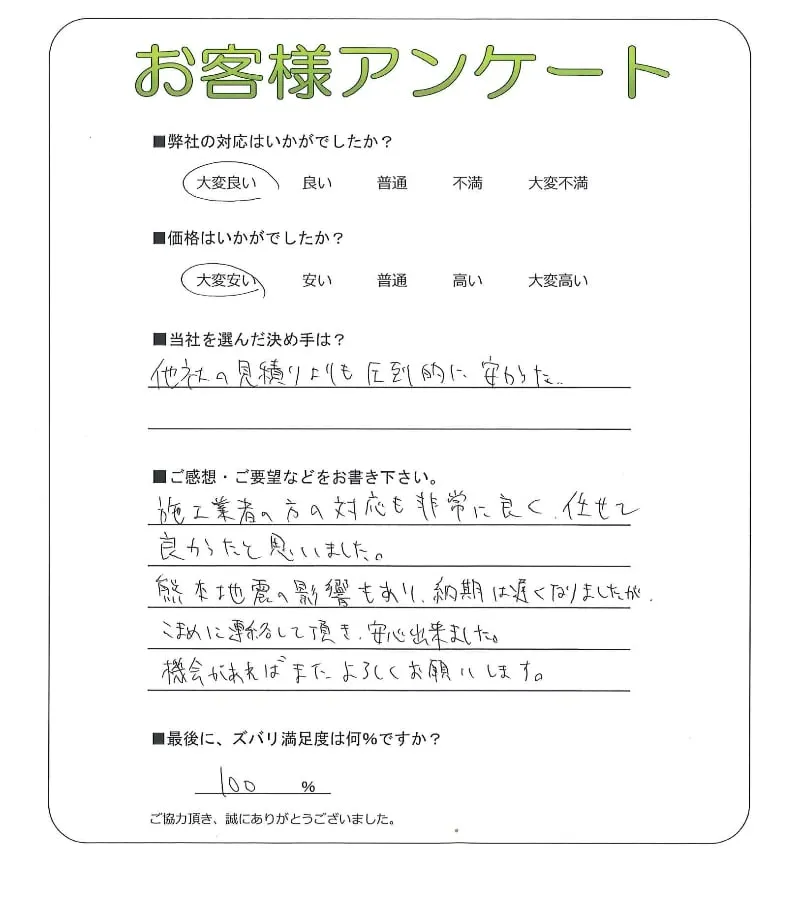 お客様アンケート
■弊社の対応はいかがでしたか？
大変良い 良い 普通 不満 大変不満
■価格はいかがでしたか？
大変安い 安い 普通 高い 大変高い
■当社を選んだ決め手は？
他社の見積りよりも圧倒的に安かった。
■ご感想・ご要望などをお書き下さい。
施工業者の方の対応も非常に良く、任せて
良かったと思いました。
熊本地震の影響もあり、納期は遅くなりましたが、
こまめに連絡して頂き、安心出来ました。
機会があればまたよろしくお願いします。
■最後に、ズバリ満足度は何%ですか？
100 %
ご協力頂き、誠にありがとうございました。